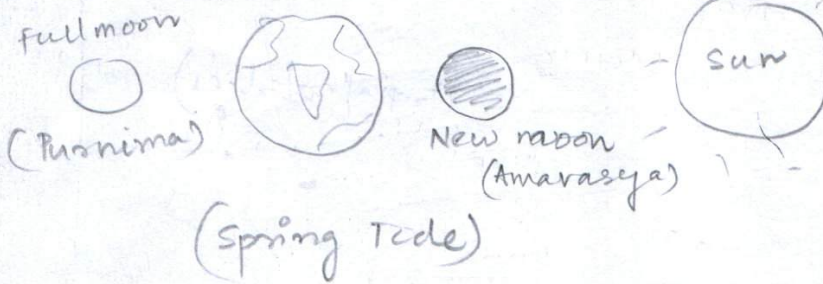 Full moon
(Purnima)
New moon
(Amavasya)
Sun
(Spring Tide)